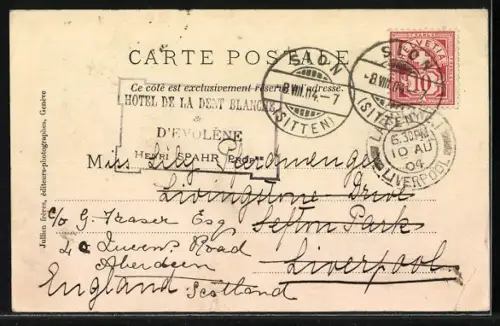 CARTE POSTALE
Ce côté est exclusivement réservé à l'adresse.
HOTEL DE LA DENT BLANCHE
&
D'EVOLÈNE
HENRI SPAHR PROP
SION
8.VIII.04.-7
(SITTEN)
SION
-8.VIII.04.-7
(SITTEN)
HELVETIA
10
5.30PM
10 AU
04
LIVERPOOL
Miss Lily
Livingstone Drive
Sefton Park
Liverpool
c/o G. Fraser Esq
4 Queens Road
Aberdeen
England Scotland
Jullien frères, éditeurs-photographes, Genève